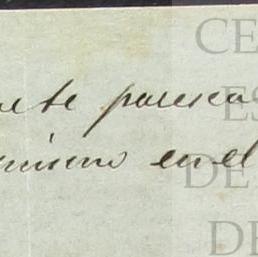 te paresca
mismo en el
CE
ES
DE
DE